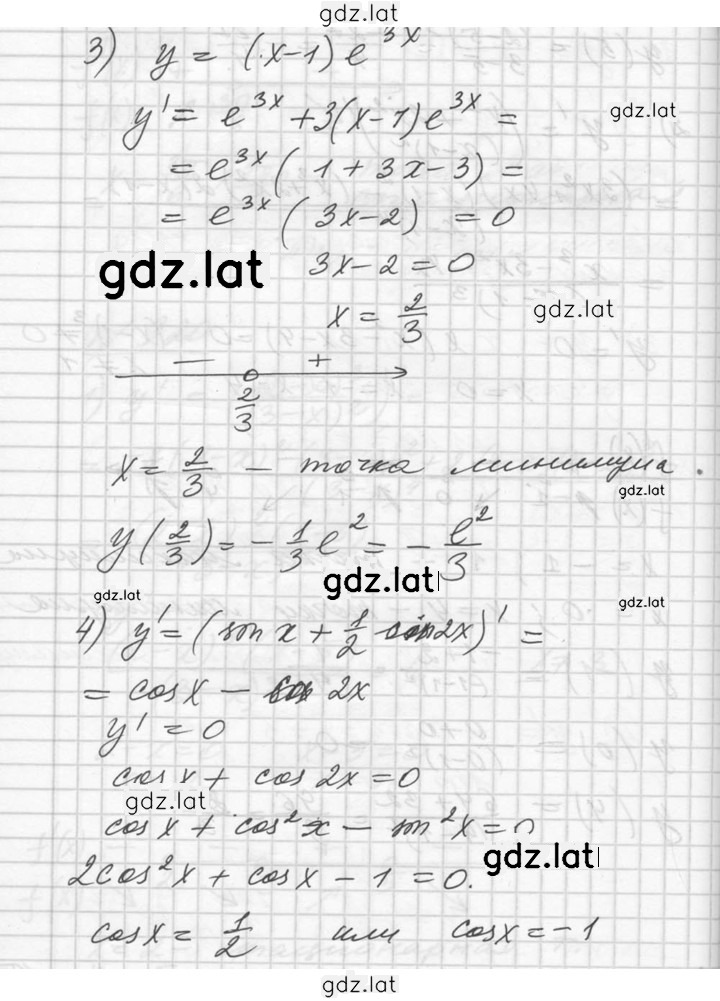 gdz.lat
3) y = (x-1) e^{3x}
y' = e^{3x} + 3(x-1) e^{3x} = gdz.lat
= e^{3x} (1 + 3x - 3) =
= e^{3x} (3x-2) = 0
gdz.lat 3x - 2 = 0
x = \frac{2}{3} gdz.lat
— +
\frac{2}{3}
x = \frac{2}{3} — точка минимума.
gdz.lat
y(\frac{2}{3}) = -\frac{1}{3} e^2 = -\frac{e^2}{3}
gdz.lat
gdz.lat gdz.lat
4) y' = (sin x + \frac{1}{2} sin 2x)' =
= cos x - cos 2x
y' = 0
cos x + cos 2x = 0
gdz.lat
cos x + cos^2 x - sin^2 x = 0
gdz.lat
2cos^2 x + cos x - 1 = 0.
cos x = \frac{1}{2} или cos x = -1
gdz.lat